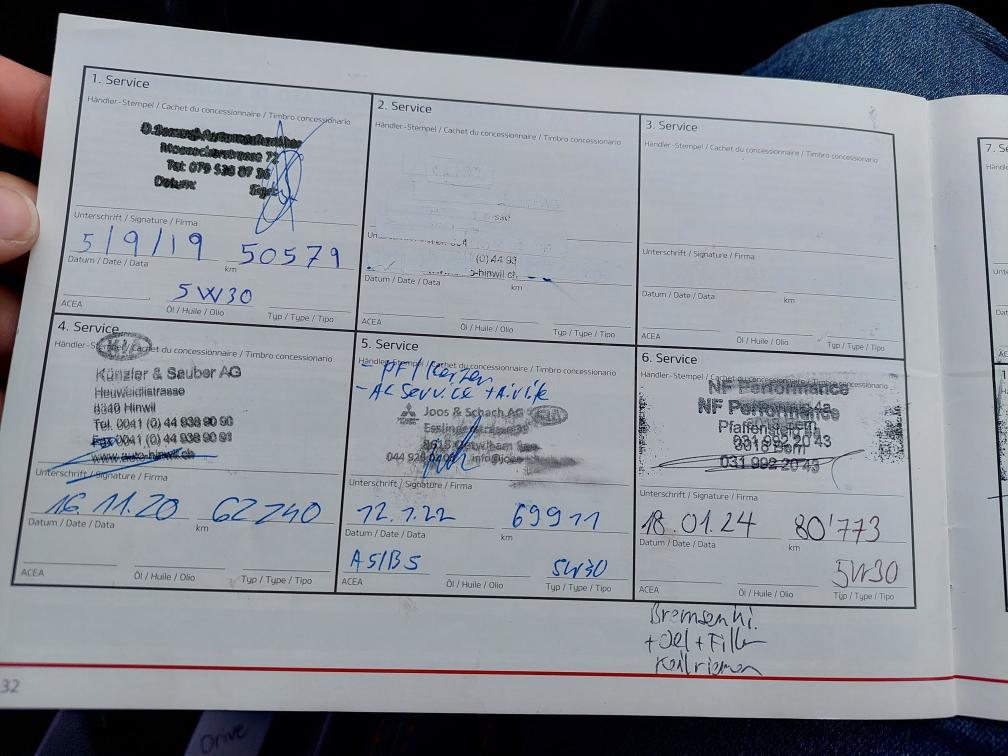 1. Service
Händler-Stempel / Cachet du concessionnaire / Timbro concessionario
Tel: 079 536 87 36
Datum:
Unterschrift / Signature / Firma
5/9/19 50579
Datum / Date / Data km
5W30
ACEA Öl / Huile / Olio Typ / Type / Tipo
2. Service
Händler-Stempel / Cachet du concessionnaire / Timbro concessionario
(0) 44 93
o-hinwil.ch
Datum / Date / Data km
ACEA Öl / Huile / Olio Typ / Type / Tipo
3. Service
Händler-Stempel / Cachet du concessionnaire / Timbro concessionario
Unterschrift / Signature / Firma
Datum / Date / Data km
ACEA Öl / Huile / Olio Typ / Type / Tipo
4. Service
Händler-Stempel / Cachet du concessionnaire / Timbro concessionario
KIA
Künzler & Sauber AG
Heuweidlistrasse
8340 Hinwil
Tel. 0041 (0) 44 938 90 90
Fax 0041 (0) 44 938 90 91
www.auto-hinwil.ch
Unterschrift / Signature / Firma
16.11.20 62240
Datum / Date / Data km
ACEA Öl / Huile / Olio Typ / Type / Tipo
5. Service
Händler-Stempel / Cachet du concessionnaire / Timbro concessionario
- AC Service + Airlife
Joos & Schach AG KIA
Esslingerstrasse
8618 Oetwil am See
044 929 info@joos
Unterschrift / Signature / Firma
12.1.22 69911
Datum / Date / Data km
A5/B5 5W30
ACEA Öl / Huile / Olio Typ / Type / Tipo
6. Service
Händler-Stempel / Cachet du concessionnaire / Timbro concessionario
NF Performance
NF Performance
031 992 20 43
031 992 20 43
Unterschrift / Signature / Firma
18.01.24 80'773
Datum / Date / Data km
5W30
ACEA Öl / Huile / Olio Typ / Type / Tipo
Bremsen hi.
+ Oel + Filter
Keilriemen
32
Drive
7. Se